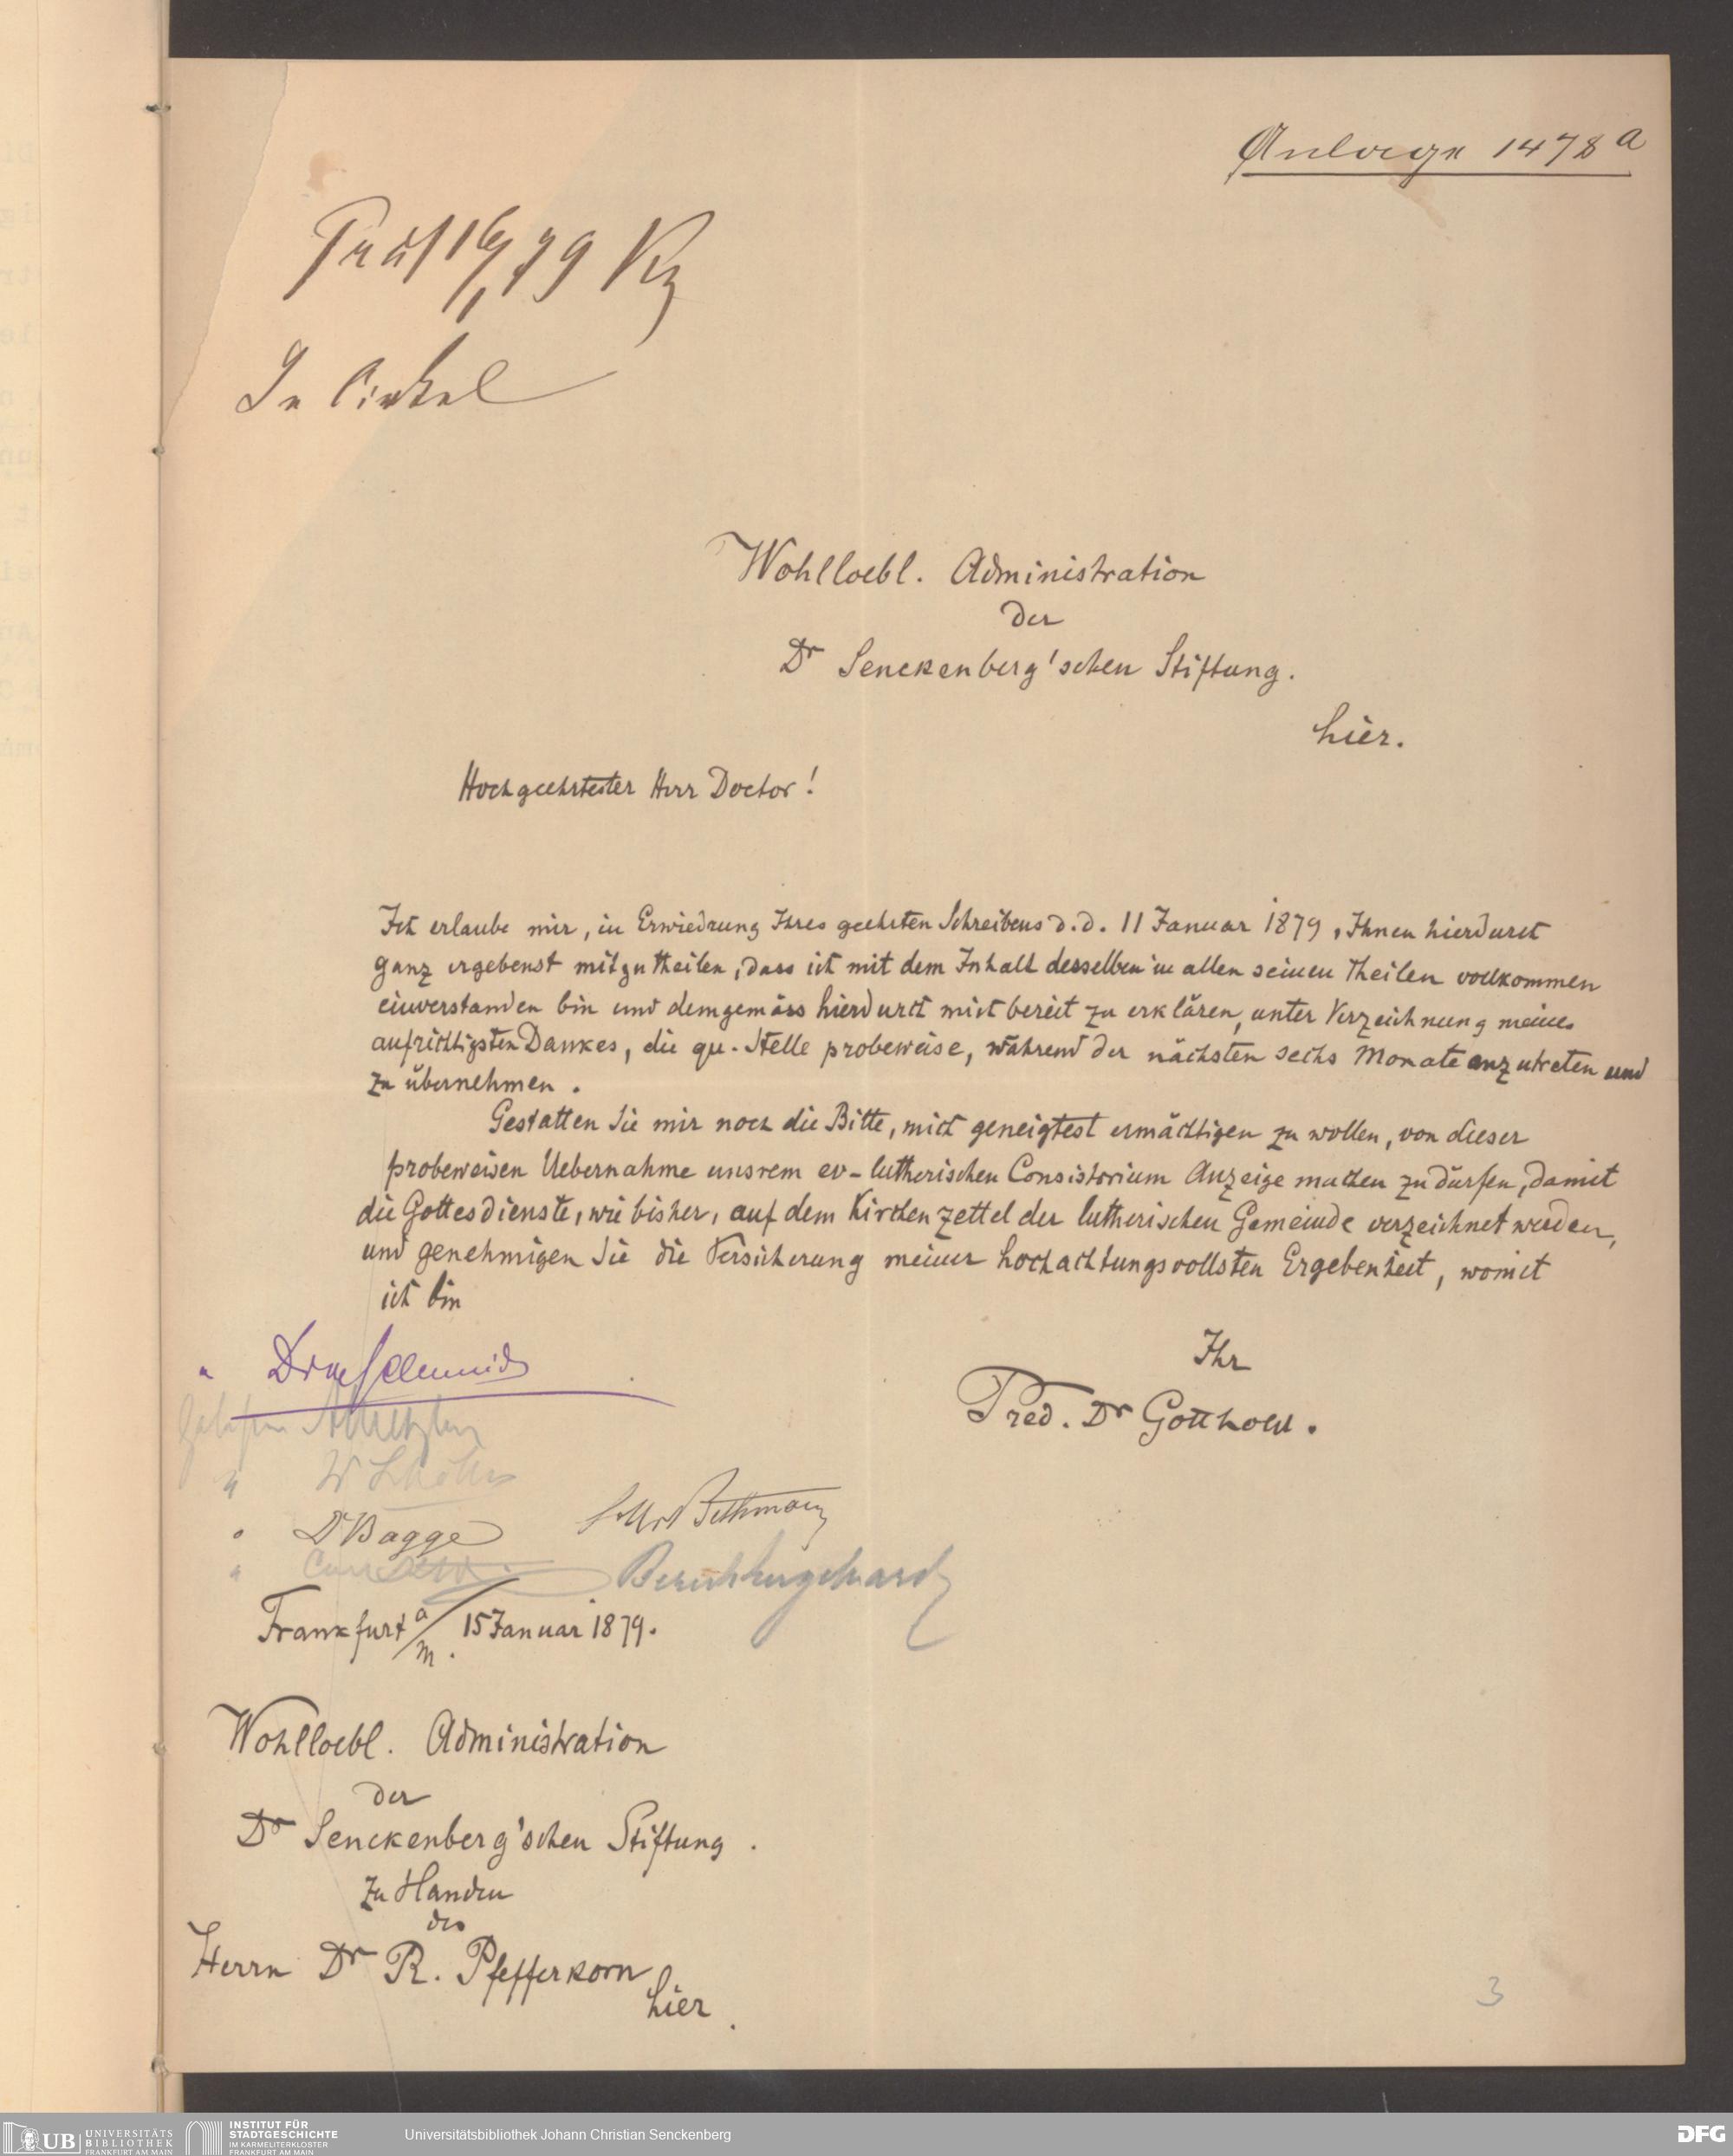 Anlage 1478 a
Präs 16/1 79
In Cirkel
Wohlloebl. Administration
der
Dr Senckenberg'schen Stiftung.
hier.
Hochgeehrtester Herr Doctor!
Ich erlaube mir, in Erwiedrung Ihres geehrten Schreibens d.d. 11 Januar 1879, Ihnen hierdurch
ganz ergebenst mitzutheilen, dass ich mit dem Inhalt desselben in allen seinen Theilen vollkommen
einverstanden bin und demgemäss hierdurch mich bereit zu erklären, unter Verzeichnung meines
aufrichtigsten Dankes, die qu. Stelle probeweise, während der nächsten sechs Monate anzutreten und
zu übernehmen.
Gestatten Sie mir noch die Bitte, mich geneigtest ermächtigen zu wollen, von dieser
probeweisen Uebernahme unsrem ev-lutherischen Consistorium Anzeige machen zu dürfen, damit
die Gottesdienste, wie bisher, auf dem Kirchenzettel der lutherischen Gemeinde verzeichnet werden,
und genehmigen Sie die Versicherung meiner hochachtungsvollsten Ergebenheit, womit
ich bin
Ihr
Pred. Dr Gotthold.
Gelesen
Dr Bagge
Bethmann
Frankfurt a/M. 15 Januar 1879.
Wohlloebl. Administration
der
Dr Senckenberg'schen Stiftung.
zu Handen
des
Herrn Dr R. Pfefferkorn
hier.
3
UB UNIVERSITÄTS
BIBLIOTHEK
FRANKFURT AM MAIN
INSTITUT FÜR
STADTGESCHICHTE
IM KARMELITERKLOSTER
FRANKFURT AM MAIN
Universitätsbibliothek Johann Christian Senckenberg
DFG